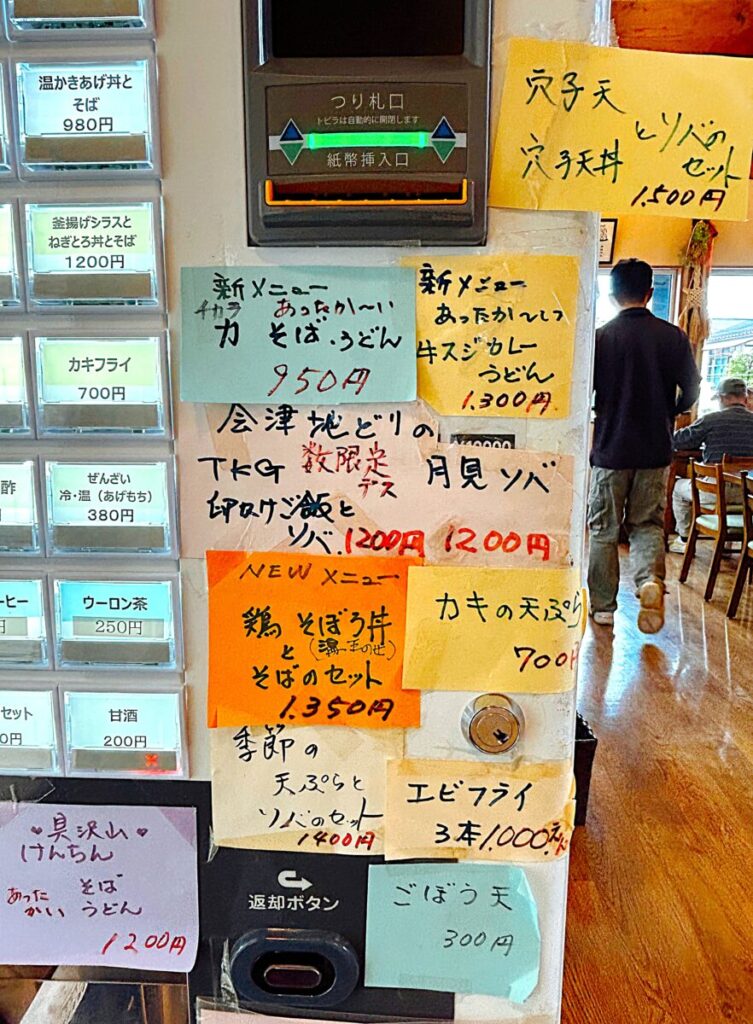 温かきあげ丼と
そば
980円
釜揚げシラスと
ねぎとろ丼とそば
1200円
カキフライ
700円
酢
ぜんざい
冷・温（あげもち）
380円
ーヒー
円
ウーロン茶
250円
セット
0円
甘酒
200円
つり札口
トビラは自動的に開閉します
紙幣挿入口
穴子天
穴子天丼
とソバの
セット
1.500円
新メニュー
チカラ あったか〜い
力 そば・うどん
950円
新メニュー
あったか〜い
牛スジカレー
うどん
1.300円
会津地どりの
TKG 数限定
デス
卵かけご飯と
ソバ 1200円
月見ソバ
1200円
NEWメニュー
鶏そぼろ丼
と
そばのセット
1.350円
カキの天ぷら
700円
季節の
天ぷらと
ソバのセット
1400円
エビフライ
3本1,000
♥具沢山♥
けんちん
あった
かい
そば
うどん
1200円
返却ボタン
ごぼう天
300円